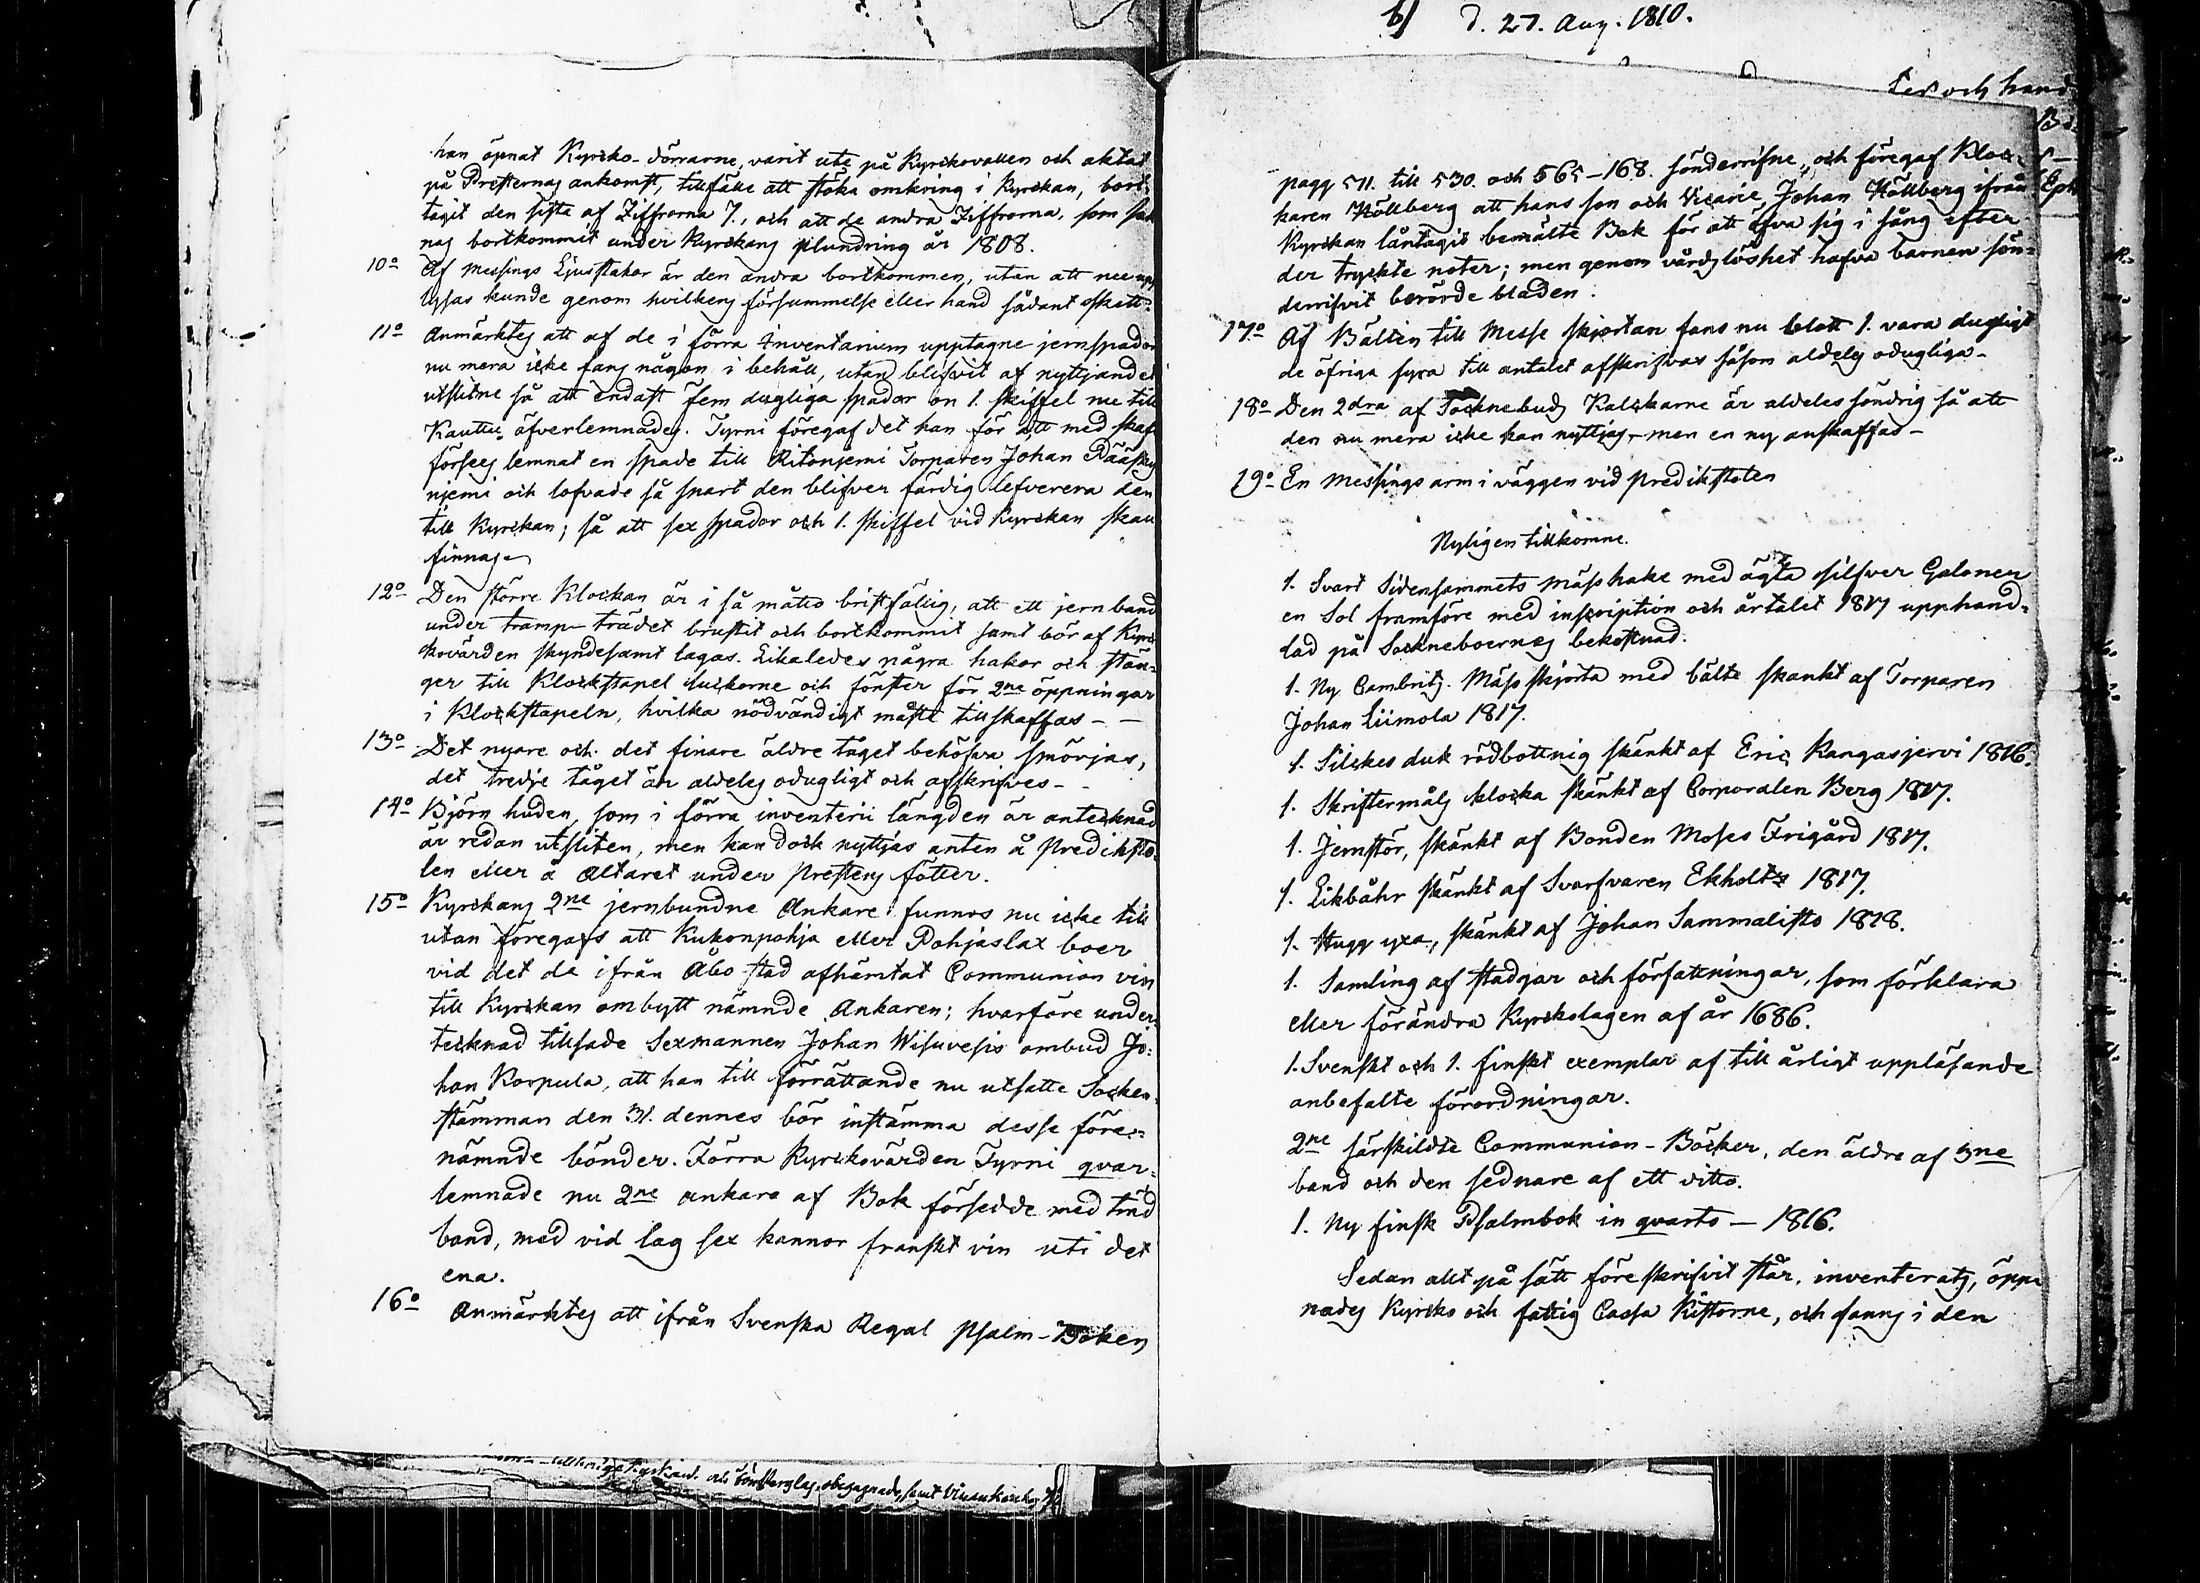 han öpnat Kyrcko-dörrarne, varit ute på Kyrckovallen och aktat
på Presternas ankomst, tillfälle att stöka omkring i Kyrckan, bort-
tagit den sista af Ziffrorna 7., och att de andra Ziffrorna, som sak
nas bortkommit under Kyrckans plundring år 1808.
10º Af Messings Ljusstakar är den andra bortkommen, utan att nu
lysas kunde genom hvilkens försummelse eller hand sådant skett.
11º Anmärktes att af de i förra Inventarium upptagne jernspador
nu mera icke fans någon i behåll, utan blifvit af nyttjandet
utslitne så att endast fem dugliga spador och 1. skiffel nu till
Kauttu öfverlemnades. Tyrni föregaf det han för att med skaft
förses lemnat en spade till Ritoniemi Torparen Johan Pääsky
njemi och lofvade så snart den blifver färdig lefverera den
till Kyrckan; så att sex spador och 1. skiffel vid Kyrckan skall
finnas.
12º Den större Klockan är i så måtto bristfällig, att ett jernband
under tramp-trädet brustit och bortkommit samt bör af Kyrc
kovärden skyndesamt lagas. Likaledes några hakar och stän-
ger till Klockstapel luckorne och fönster för 2ne öppningar
i Klockstapeln, hvilka nödvändigt måste tillskaffas —
13º Det nyare och det finare äldre tåget behöfva smörjas,
det tredje tåget är aldeles odugligt och afskrifves —
14º Björn huden, som i förra inventerii längden är antecknad
är redan utsliten, men kan dock nyttjas anten å Prediksto-
len eller å Altaret under Prestens fötter.
15º Kyrckans 2ne jernbundne Ankare funnos nu icke till
utan föregafs att Kukonpohja eller Pohjaslax boer
vid det de ifrån Åbo stad afhämtat Communion vin
till Kyrckan ombytt nämnde Ankaren; hvarföre under-
tecknad tillsade Sexmannen Johan Wisuvesis ombud Jo-
han Korpula, att han till förrättande nu utsatte Socken-
stämman den 31. dennes bör instämma desse före-
nämnde bönder. Förra Kyrckovärden Tyrni qvar-
lemnade nu 2ne ankare af Bok försedde med tind
band, med vid lag sex kannor franskt vin uti det
ena.
16º Anmärktes att ifrån Svenska Regal Psalm-Boken
b) d. 27. Aug. 1810.
och hand
pagg 511. till 530. och 565-168. sönderrifne, och föregaf Kloc-
karen Höllberg att hans son och Vicarie Johan Höllberg ifrån
Kyrckan låntagit bemälte Bok för att öfva sig i sång efter
der tryckte noter; men genom vårdslöshet hafva barnen sön-
derrifvit berörde bladen.
17º Af Bälten till Messe skjortan fans nu blott 1. vara dugligt
de öfriga fyra till antalet afskrifvas såsom aldeles odugliga —
18º Den 2dra af Socknebuds Kalckarne är aldeles söndrig så att
den nu mera icke kan nyttjas, men en ny anskaffas —
19º En Messings arm i väggen vid Predikstolen
Nyligen tillkomne.
1. Svart Sidensammets Mäss hake med ägta silfver Galoner
en Sol framföre med inscription och årtalet 1817 upphand-
lad på Sockneboernas bekostnad.
1. Ny Cambrits. Mäss skjorta med bälte skänkt af Torparen
Johan Liimola 1817.
1. Silckes duk rödbottnig skänkt af Eric Kangasjervi 1816.
1. Skriftermåls klocka skänkt af Corporalen Berg 1817.
1. Jernstör, skänkt af Bonden Moses Frigård 1817.
1. Likbåhr skänkt af Svarfvaren Ekholtz 1817.
1. Hugg yxa, skänkt af Johan Sammalisto 1818.
1. Samling af stadgar och författningar, som förklara
eller förändra Kyrckolagen af år 1686.
1. Svenskt och 1. finskt exemplar af till årligt uppläsande
anbefalte förordningar.
2ne särskildte Communion-Böcker, den äldre af 3ne
band och den sednare af ett ditto.
1. Ny finsk Psalmbok in qvarto — 1816.
Sedan allt på sätt föreskrifvit står, inventerats, öpp-
nades Kyrcko och fattig Cassa Kistorne, och fanns i den